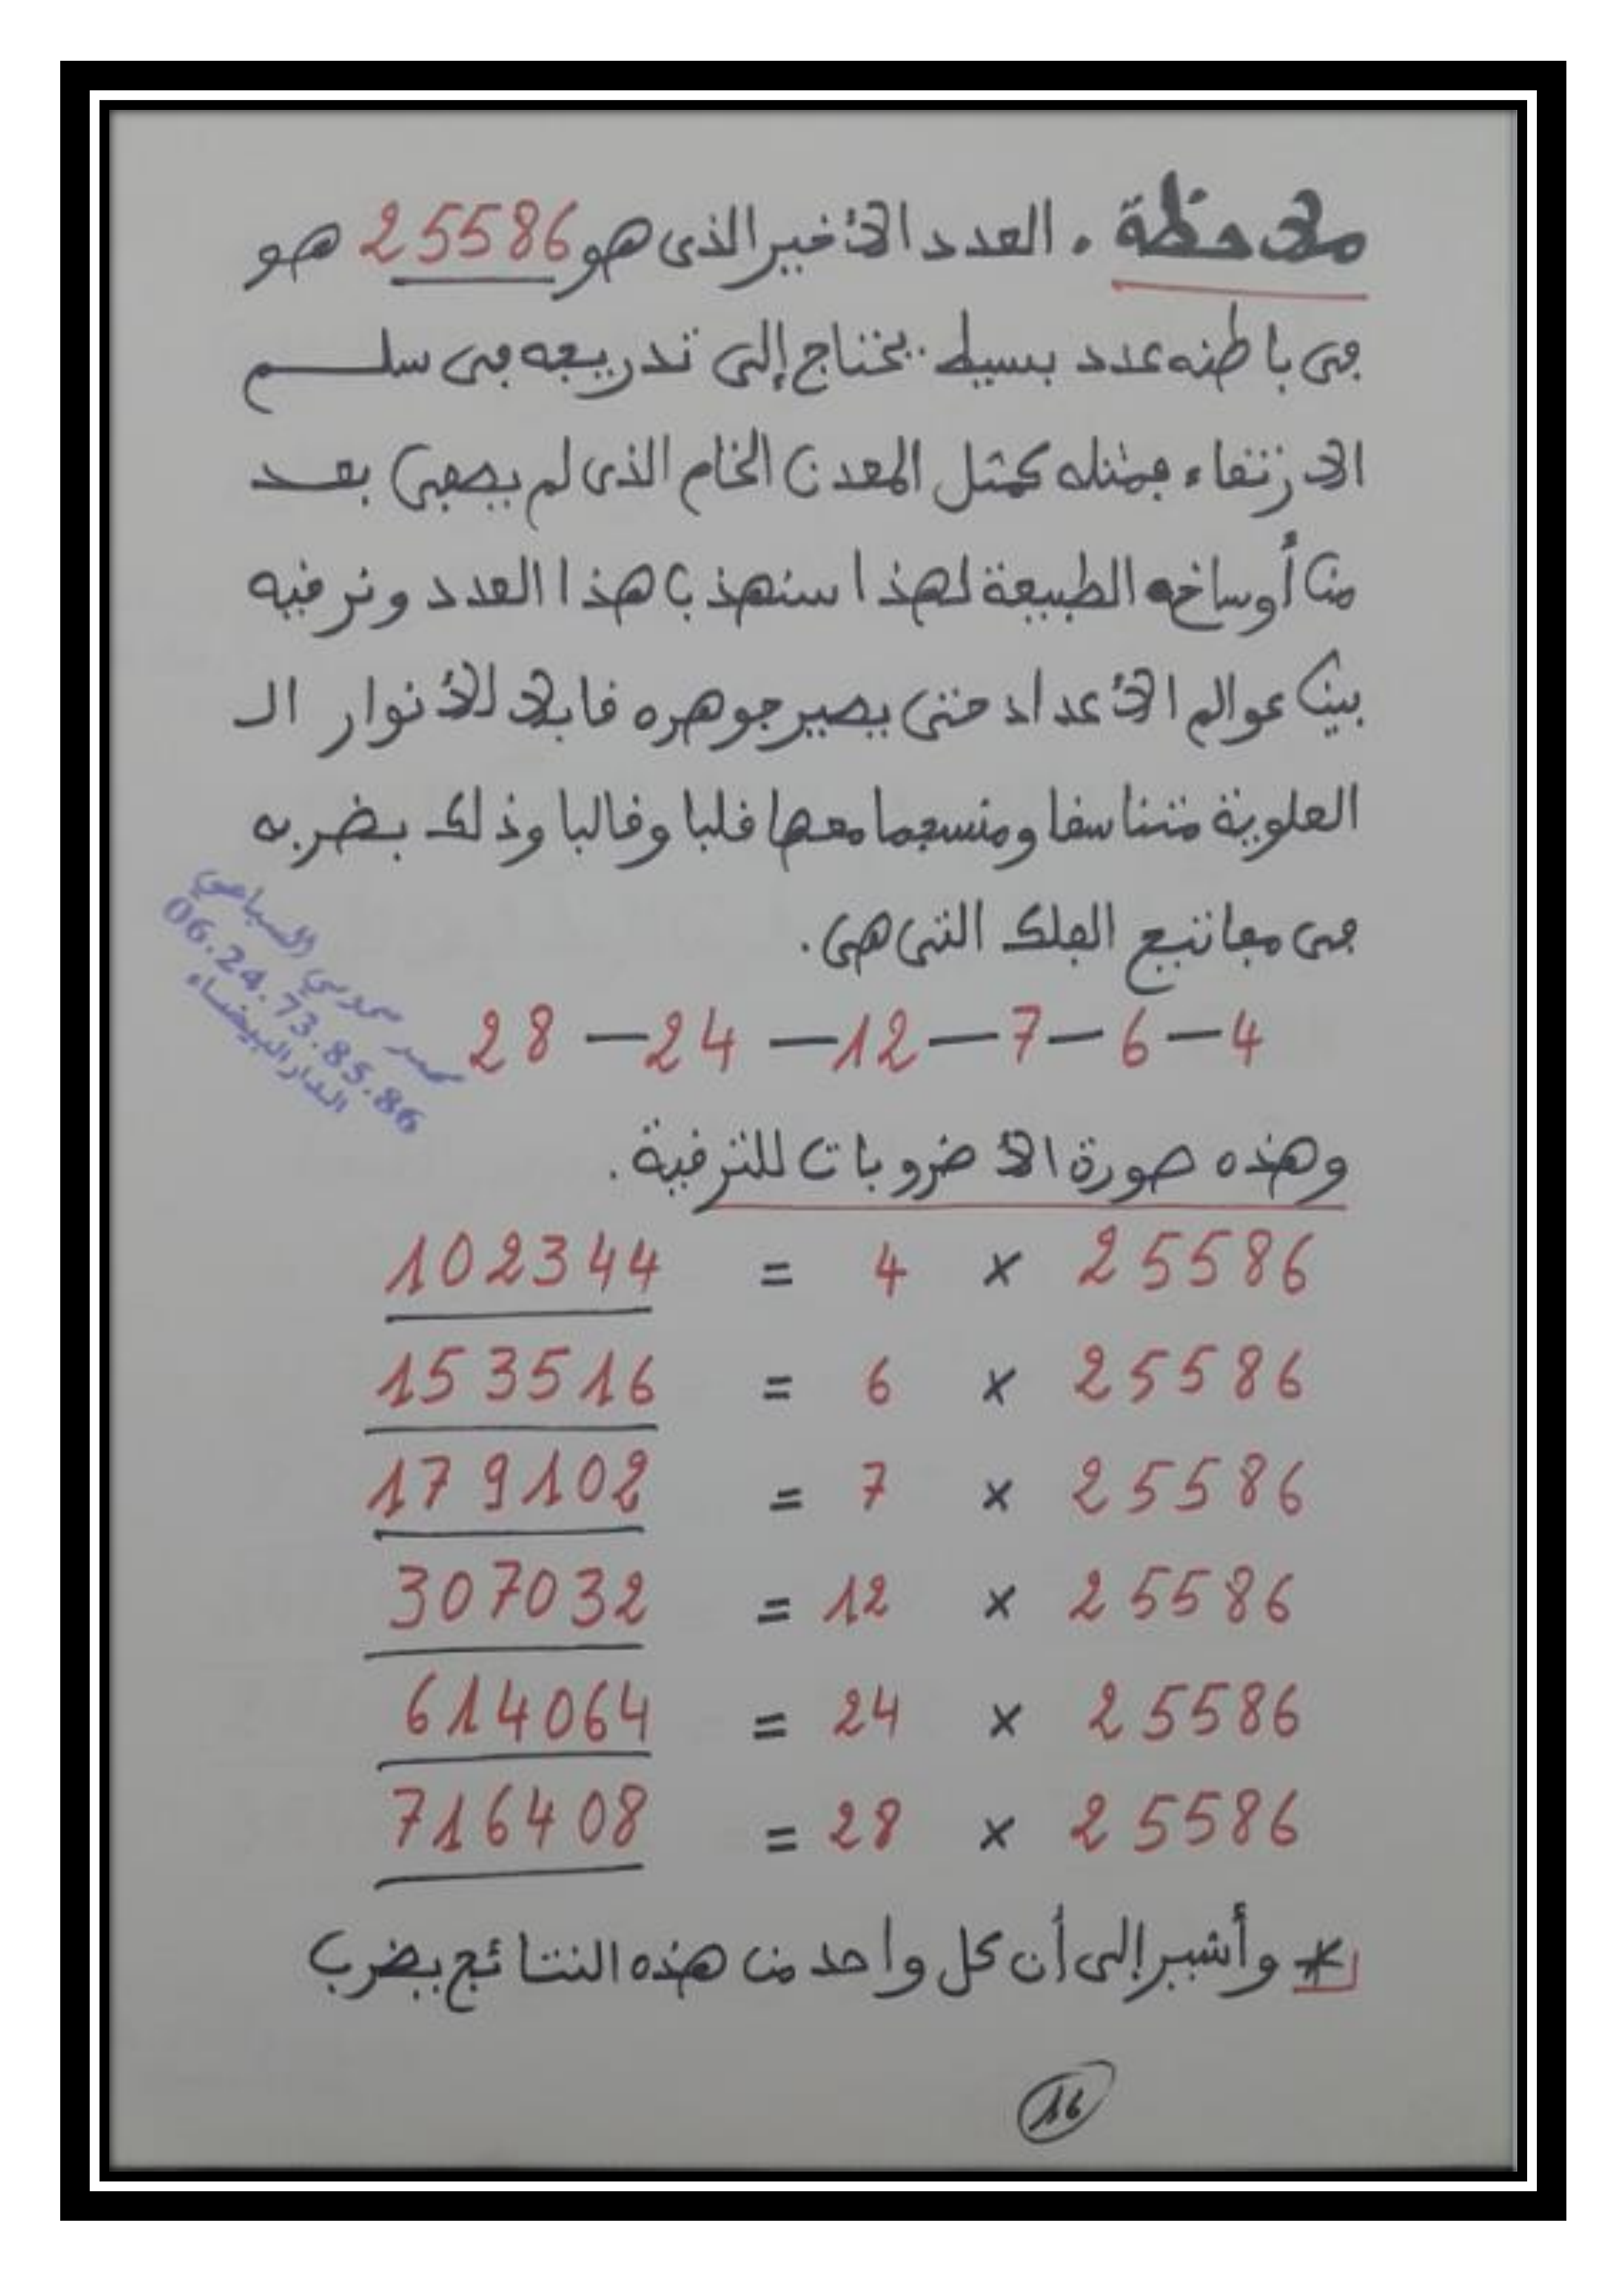 ملاحظة . العدد الأخير الذي هو 25586 هو
في باطنه عدد بسيط يحتاج إلى تدريجه في سلم
الارتقاء فمثله كمثل المعدن الخام الذي لم يصفى بعد
من أوساخه الطبيعة لهذا سنهذب هذا العدد ونرقيه
بين عوالم الأعداد حتى يصير جوهره قابلا للأنوار الـ
العلوية متناسقا ومنسجما معها قلبا وقالبا وذلك بضربه
في مفاتيح الفلك التي هي .
4 – 6 – 7 – 12 – 24 – 28
محمد السباعي
06.24.73.85.86
الدار البيضاء
وهذه صورة الأضروبات للترقية .
25586 × 4 = 102344
25586 × 6 = 153516
25586 × 7 = 179102
25586 × 12 = 307032
25586 × 24 = 614064
25586 × 28 = 716408
* وأشير إلى أن كل واحد من هذه النتائج يضرب
16